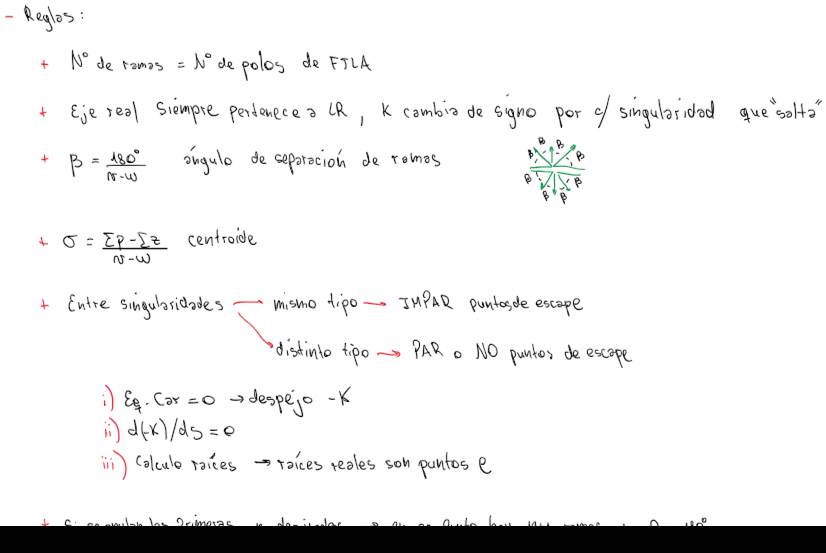 - Reglas:
+ Nº de ramas = Nº de polos de FTLA
+ Eje real siempre pertenece a LR, K cambia de signo por c/ singularidad que "salta"
+ β = 180°/(n-w) ángulo de separación de ramas
β β β β β β β β
+ σ = (Σp - Σz)/(n-w) centroide
+ Entre singularidades — mismo tipo → IMPAR puntos de escape
distinto tipo → PAR o NO puntos de escape
i) Eq. Car = 0 → despejo -K
ii) d(-K)/ds = 0
iii) Calculo raíces → raíces reales son puntos e